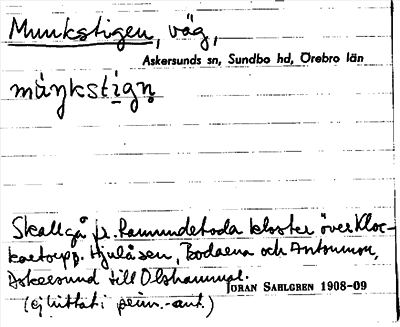 Munkstigen, väg,
Askersunds sn, Sundbo hd, Örebro län
Skall gå fr. Ramundeboda kloster över Kloc-
Hjulåsen, Bodarna och
Askersund till Olshammar.
(ej hittat i prim.-ant.)
JÖRAN SAHLGREN 1908-09